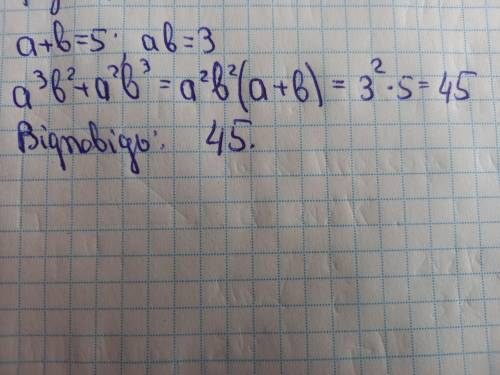 a+b=5; ab=3
a³b²+a²b³ = a²b²(a+b) = 3²·5 = 45
Відповідь: 45.